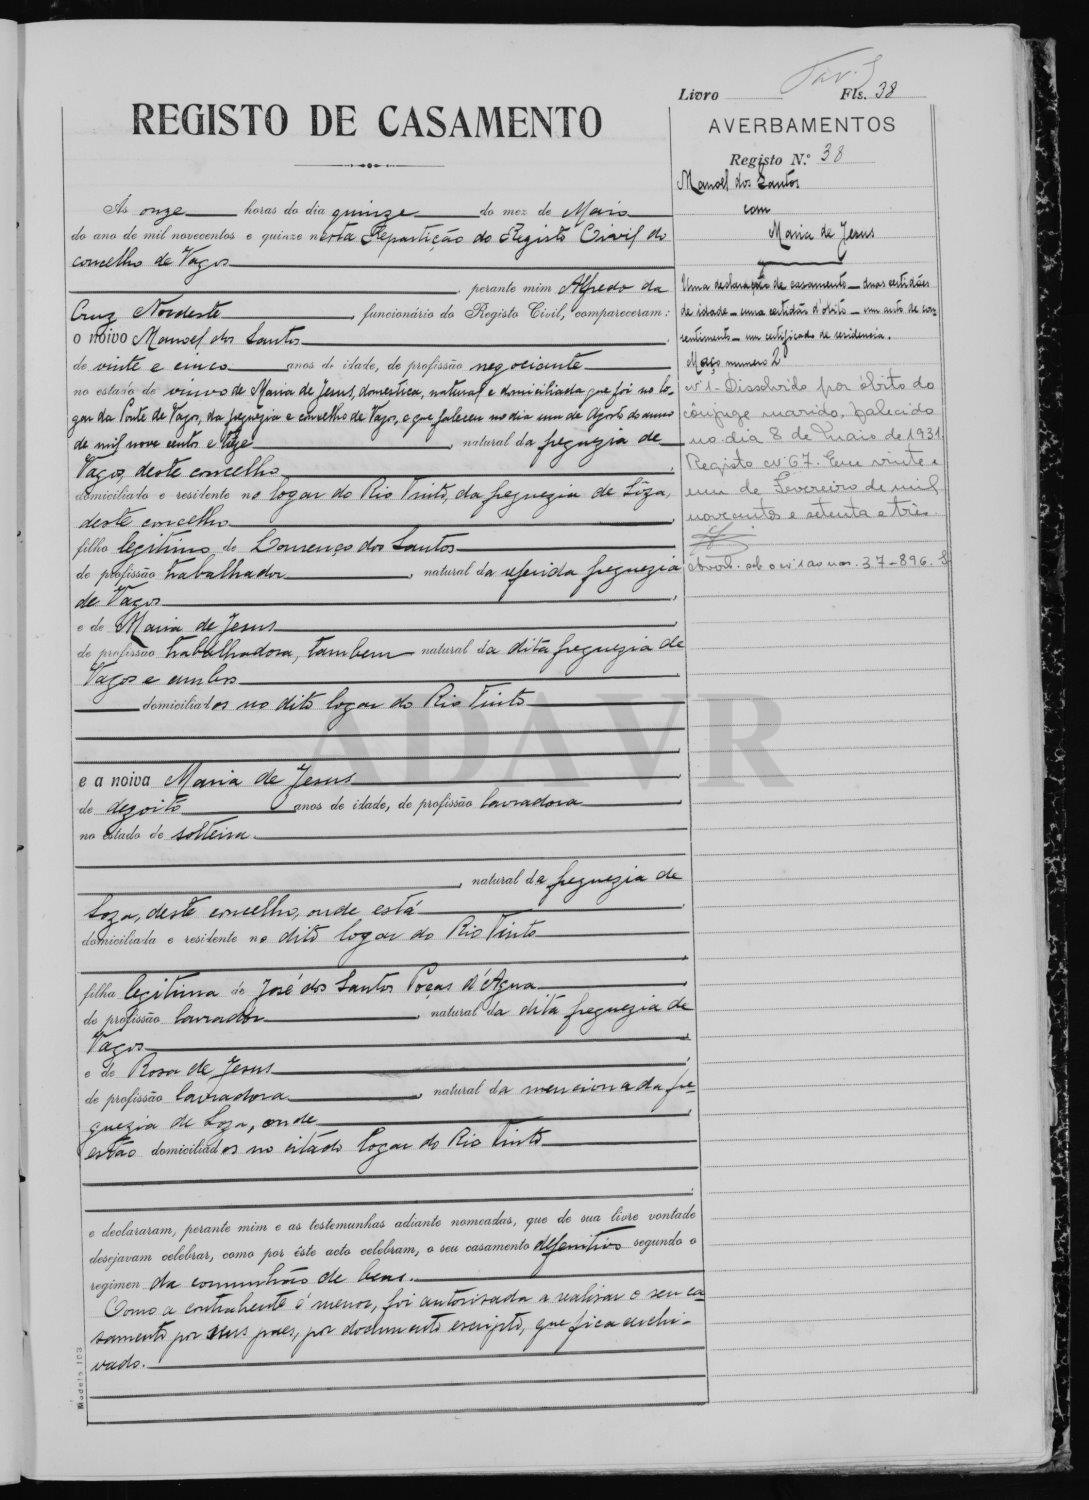 Livro Fls. 38
REGISTO DE CASAMENTO
AVERBAMENTOS
Registo N.º 38
Manoel dos Santos
com
Maria de Jesus
Uma declaração de casamento — duas certidões
de idade — uma certidão d'obito — um auto de con-
sentimento — um certificado de residencia.
Maço numero 2
Nº 1 - Dissolvido por óbito do
cônjuge marido, falecido
no dia 8 de Maio de 1931.
Registo nº 67. Em vinte e
um de Fevereiro de mil
novecentos e setenta e três.
Averb. sob o nº 1 ao nº. 37-896.
Ás onze horas do dia quinze do mez de Maio
do ano de mil novecentos e quinze nesta Repartição do Registo Civil do
concelho de Vagos
, perante mim Alfredo da
Cruz Nordeste, funcionário do Registo Civil, compareceram:
o noivo Manoel dos Santos
de vinte e cinco anos de idade, de profissão negociante
no estado de viuvo de Maria de Jesus, domestica, natural e domiciliada que foi no lo-
gar da Ponte de Vagos, da freguezia e concelho de Vagos, e que faleceu no dia um de Agosto do anno
de mil nove centos e treze, natural da freguezia de
Vagos, deste concelho
domiciliado e residente no logar do Rio Tinto, da freguezia de Sôza,
deste concelho
filho legitimo de Lourenço dos Santos
de profissão trabalhador, natural da referida freguezia
de Vagos
e de Maria de Jesus
de profissão trabalhadora, tambem natural da dita freguezia de
Vagos e ambos
domiciliados no dito logar do Rio Tinto
ADAVR
e a noiva Maria de Jesus
de dezoito anos de idade, de profissão lavradora
no estado de solteira
, natural da freguezia de
Soza, deste concelho, onde está
domiciliada e residente no dito logar do Rio Tinto
filha legitima de José dos Santos Poças d'Agua
de profissão lavrador, natural da dita freguezia de
Vagos
e de Rosa de Jesus
de profissão lavradora, natural da mencionada fre-
guezia de Soza, onde
estão domiciliados no citado logar do Rio Tinto
e declararam, perante mim e as testemunhas adiante nomeadas, que de sua livre vontade
desejavam celebrar, como por êste acto celebram, o seu casamento definitivo segundo o
regimen da comunhão de bens.
Como a contrahente é menor, foi autorisada a realisar o seu ca-
samento por seus paes, por documento escripto, que fica archi-
vado.
Modelo 103